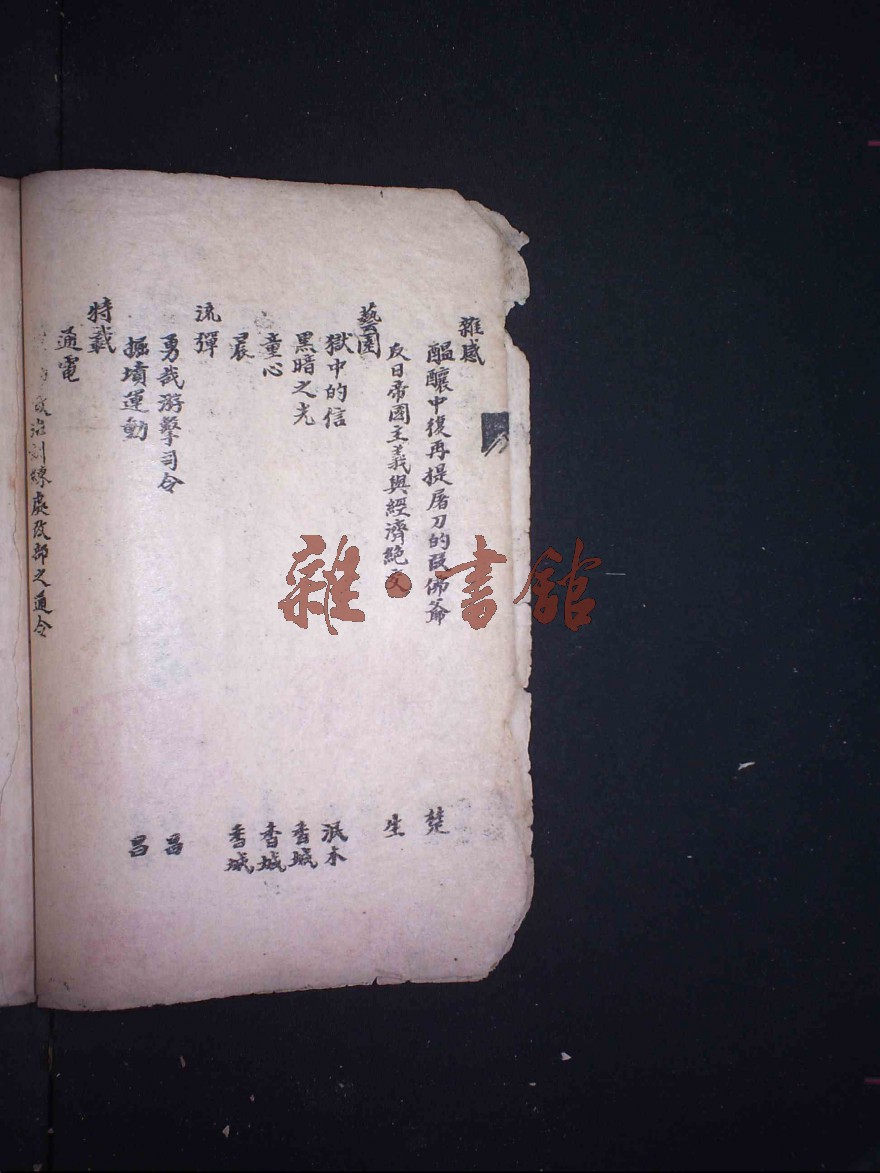 雜感
醞釀中復再提屠刀的段佛爺 楚
反日帝國主義與經濟絕交 生
藝園
獄中的信 泯木
黑暗之光 香城
童心 香城
晨 香城
流彈
勇哉游擊司令 昌
掘墳運動 昌
特載
通電
政治訓練處改部之通令
雜·書館